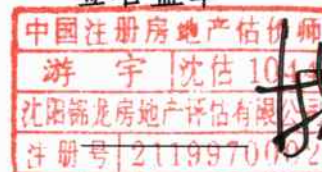 中國注册房地产估价师
游 宇 沈估 104
沈阳铭龙房地产评估有限公司
注册号 2119970092